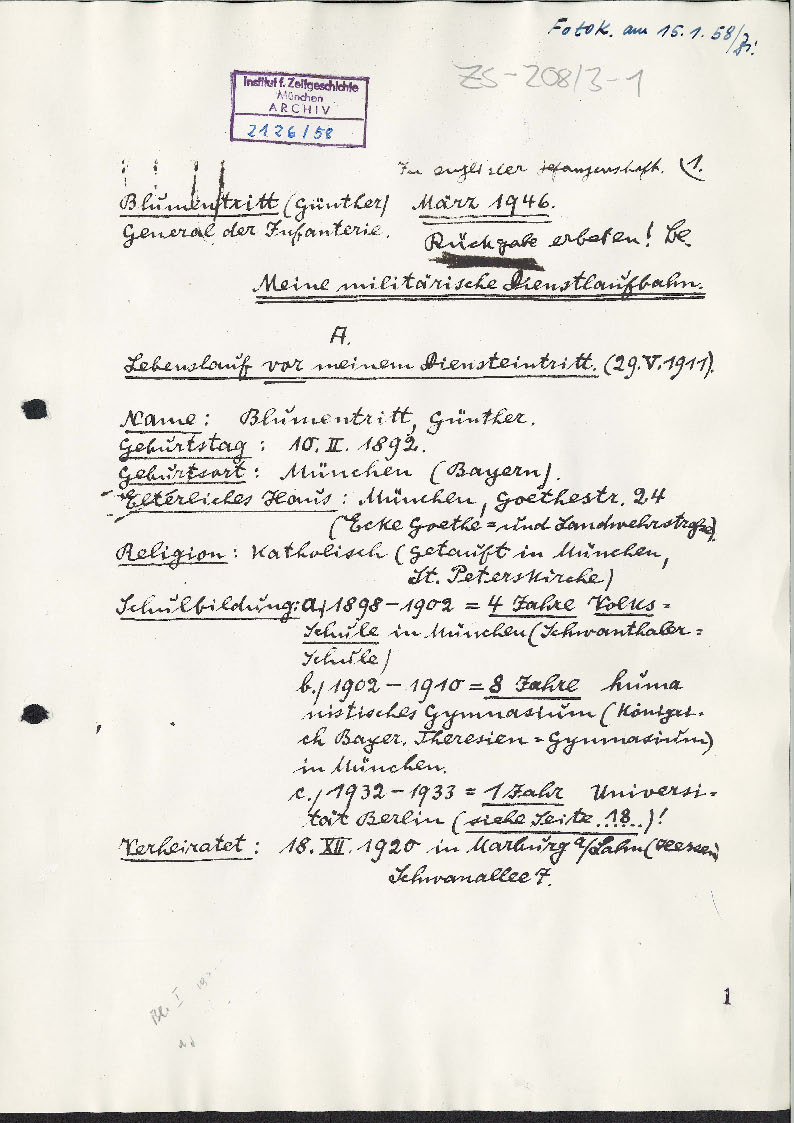 Fotok. am 15.1.58/Zi.
ZS-208/3-1
Institut f. Zeitgeschichte
München
ARCHIV
2126/58
In englischer Gefangenschaft. 1.
Blumentritt (Günther) März 1946.
General der Infanterie.
Rückgabe erbeten! Be
Meine militärische Dienstlaufbahn.
A.
Lebenslauf vor meinem Diensteintritt. (29.V.1911).
Name: Blumentritt, Günther.
Geburtstag: 10.II.1892.
Geburtsort: München (Bayern).
Elterliches Haus: München, Goethestr. 24
(Ecke Goethe= und Landwehrstraße).
Religion: Katholisch (getauft in München,
St. Peterskirche)
Schulbildung: a.) 1898-1902 = 4 Jahre Volks=
Schule in München (Schwanthaler=
Schule)
b.) 1902-1910 = 8 Jahre huma
nistisches Gymnasium (Königli.
ch Bayer. Theresien=Gymnasium)
in München.
c.) 1932-1933 = 1 Jahr Universi=
tät Berlin (siehe Seite..18..)!
Verheiratet: 18.XII.1920 in Marburg a/Lahn (Hessen
Schwanallee 7.
1
Bl. I